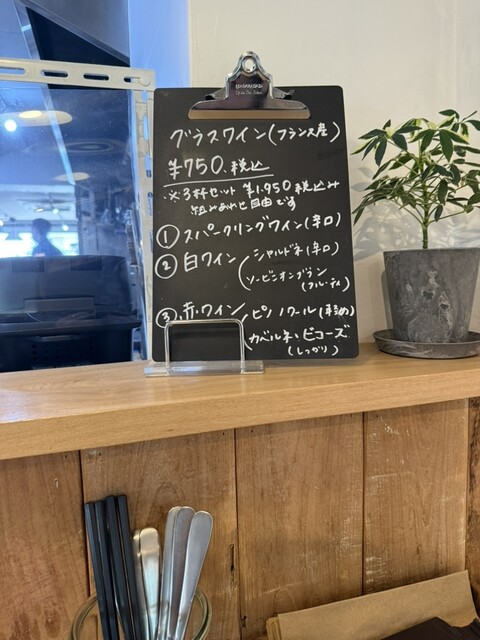 グラスワイン(フランス産)
¥750.税込
※3杯セット ¥1.950税込み
組み合わせ自由です
① スパークリングワイン(辛口)
② 白ワイン シャルドネ(辛口)
ソービニオンブラン
(フルーティ)
③ 赤・ワイン ピノノワール(軽め)
カベルネ・ビコーズ
(しっかり)